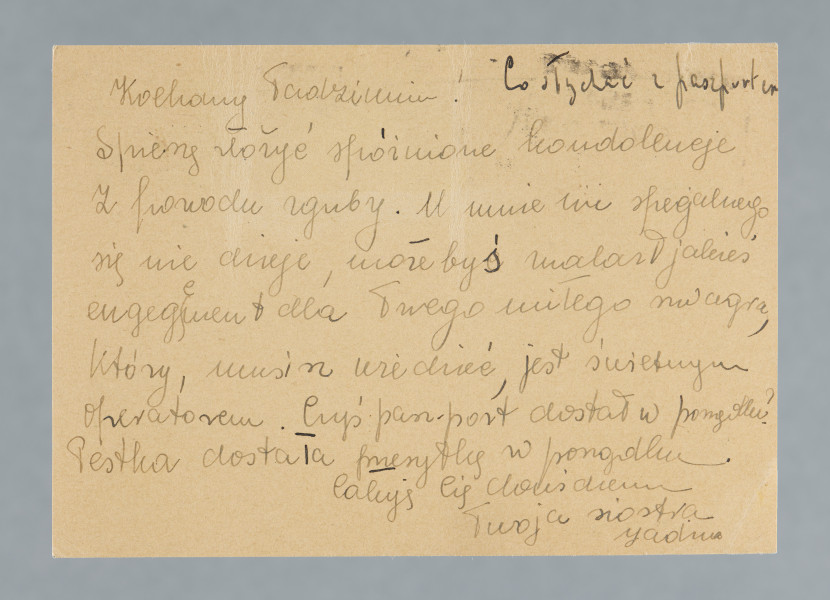 Kochany Tadzimin! Co słychać z paszportem
Spieszę złożyć spóźnione kondolencje
z powodu zguby. U mnie nic specjalnego
się nie dzieje, może byś znalazł jakieś
engegement dla Twego miłego szwagra,
który, musisz wiedzieć, jest świetnym
operatorem. Czyś paszport dostał w porządku?
Pestka dostała przesyłkę w porządku.
Całuję Cię
Twoja siostra